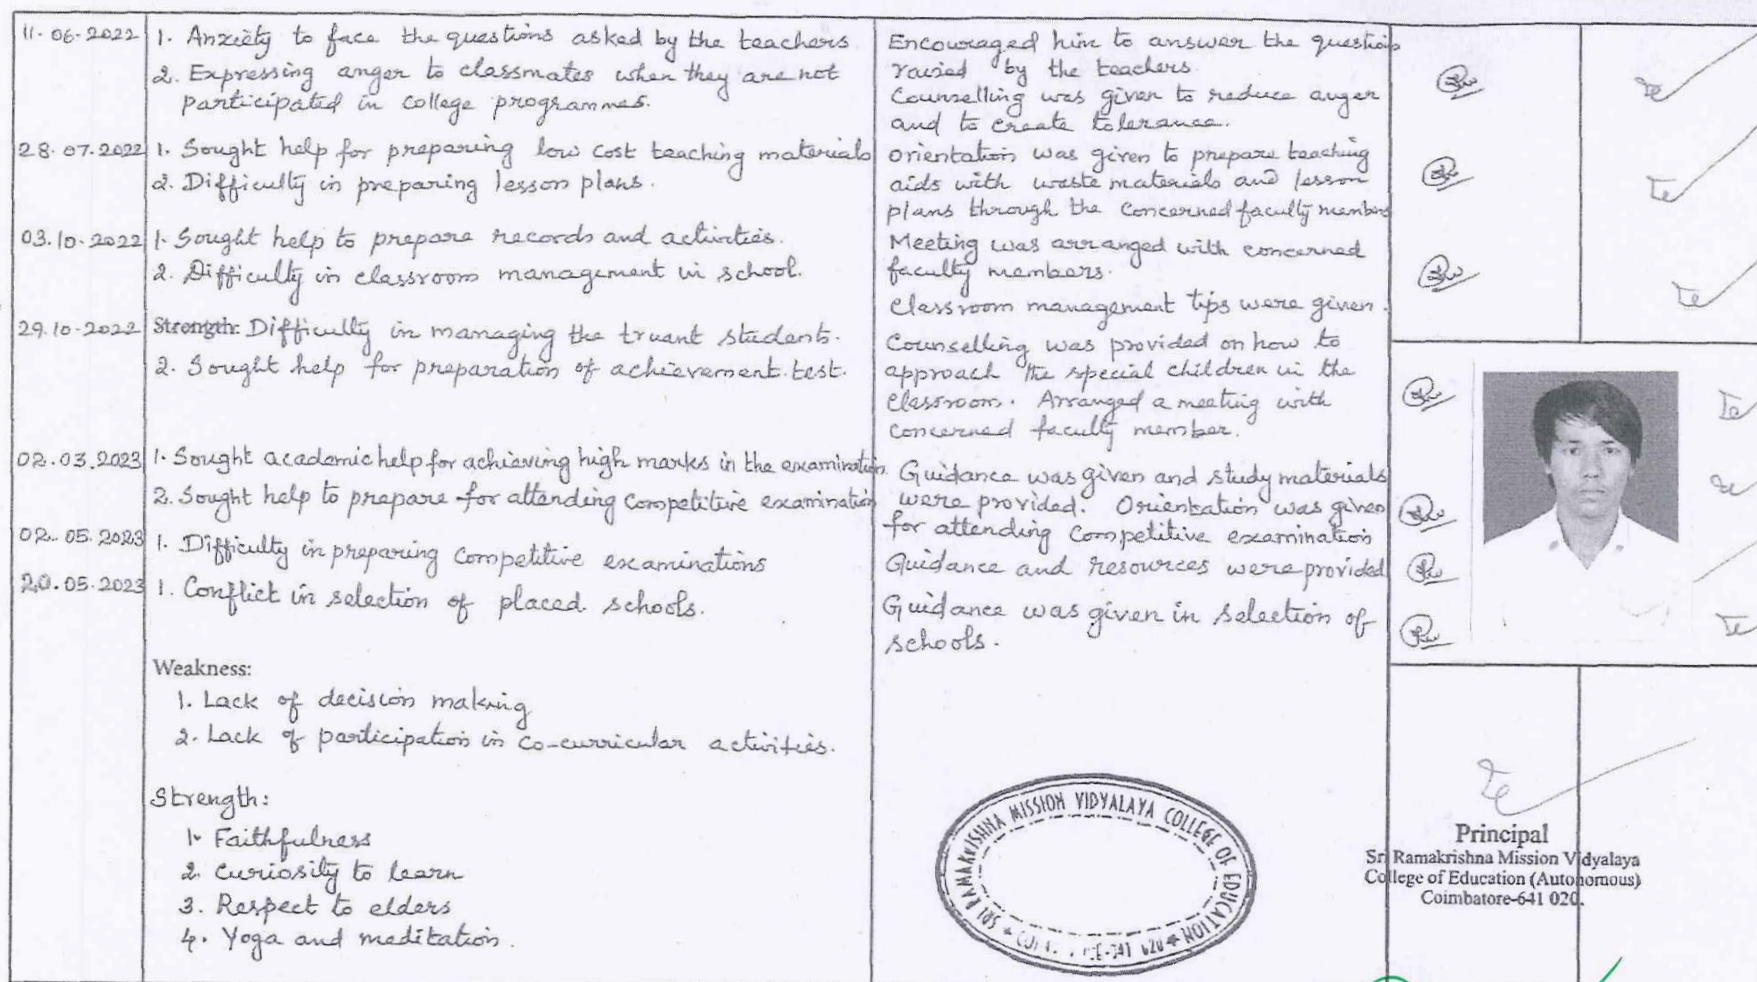 11-06-2022 1. Anxiety to face the questions asked by the teachers
2. Expressing anger to classmates when they are not
participated in college programmes.
Encouraged him to answer the questions
raised by the teachers.
Counselling was given to reduce anger
and to create tolerance.
28.07.2022 1. Sought help for preparing low cost teaching materials
2. Difficulty in preparing lesson plans.
Orientation was given to prepare teaching
aids with waste materials and lesson
plans through the concerned faculty members
03.10.2022 1. Sought help to prepare records and activities.
2. Difficulty in classroom management in school.
Meeting was arranged with concerned
faculty members.
Classroom management tips were given.
29.10-2022 Strength: Difficulty in managing the truant students.
2. Sought help for preparation of achievement test.
Counselling was provided on how to
approach the special children in the
classroom. Arranged a meeting with
concerned faculty member.
02.03.2023 1. Sought academic help for achieving high marks in the examination
2. Sought help to prepare for attending competitive examination
Guidance was given and study materials
were provided. Orientation was given
for attending competitive examination
02.05.2023 1. Difficulty in preparing competitive examinations
Guidance and resources were provided
20.05.2023 1. Conflict in selection of placed schools.
Guidance was given in selection of
schools.
Weakness:
1. Lack of decision making
2. Lack of participation in co-curricular activities.
Strength:
1. Faithfulness
2. Curiosity to learn
3. Respect to elders
4. Yoga and meditation.
SRI RAMAKRISHNA MISSION VIDYALAYA COLLEGE OF EDUCATION
Principal
Sri Ramakrishna Mission Vidyalaya
College of Education (Autonomous)
Coimbatore-641 020.